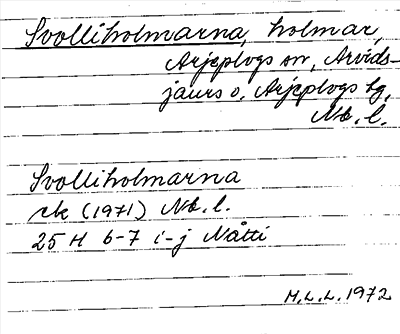 Svolliholmarna, holmar,
Arjeplogs sn, Arvids-
jaurs o. Arjeplogs tg,
Nb. l.
Svolliholmarna
rk (1971) Nb. l.
25 H 6-7 i-j Nåtti
M.L.L. 1972